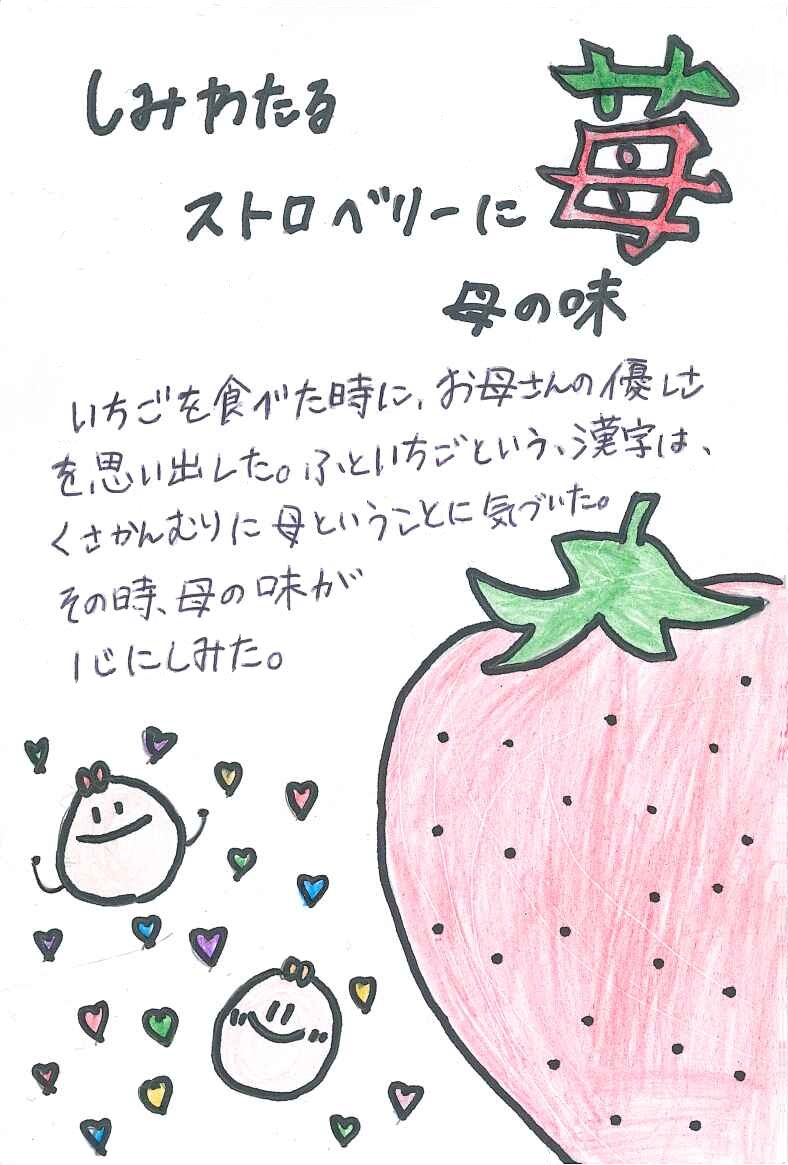 苺
しみわたる
ストロベリーに
母の味
いちごを食べた時に、お母さんの優しさ
を思い出した。ふといちごという、漢字は、
くさかんむりに母ということに気づいた。
その時、母の味が
心にしみた。